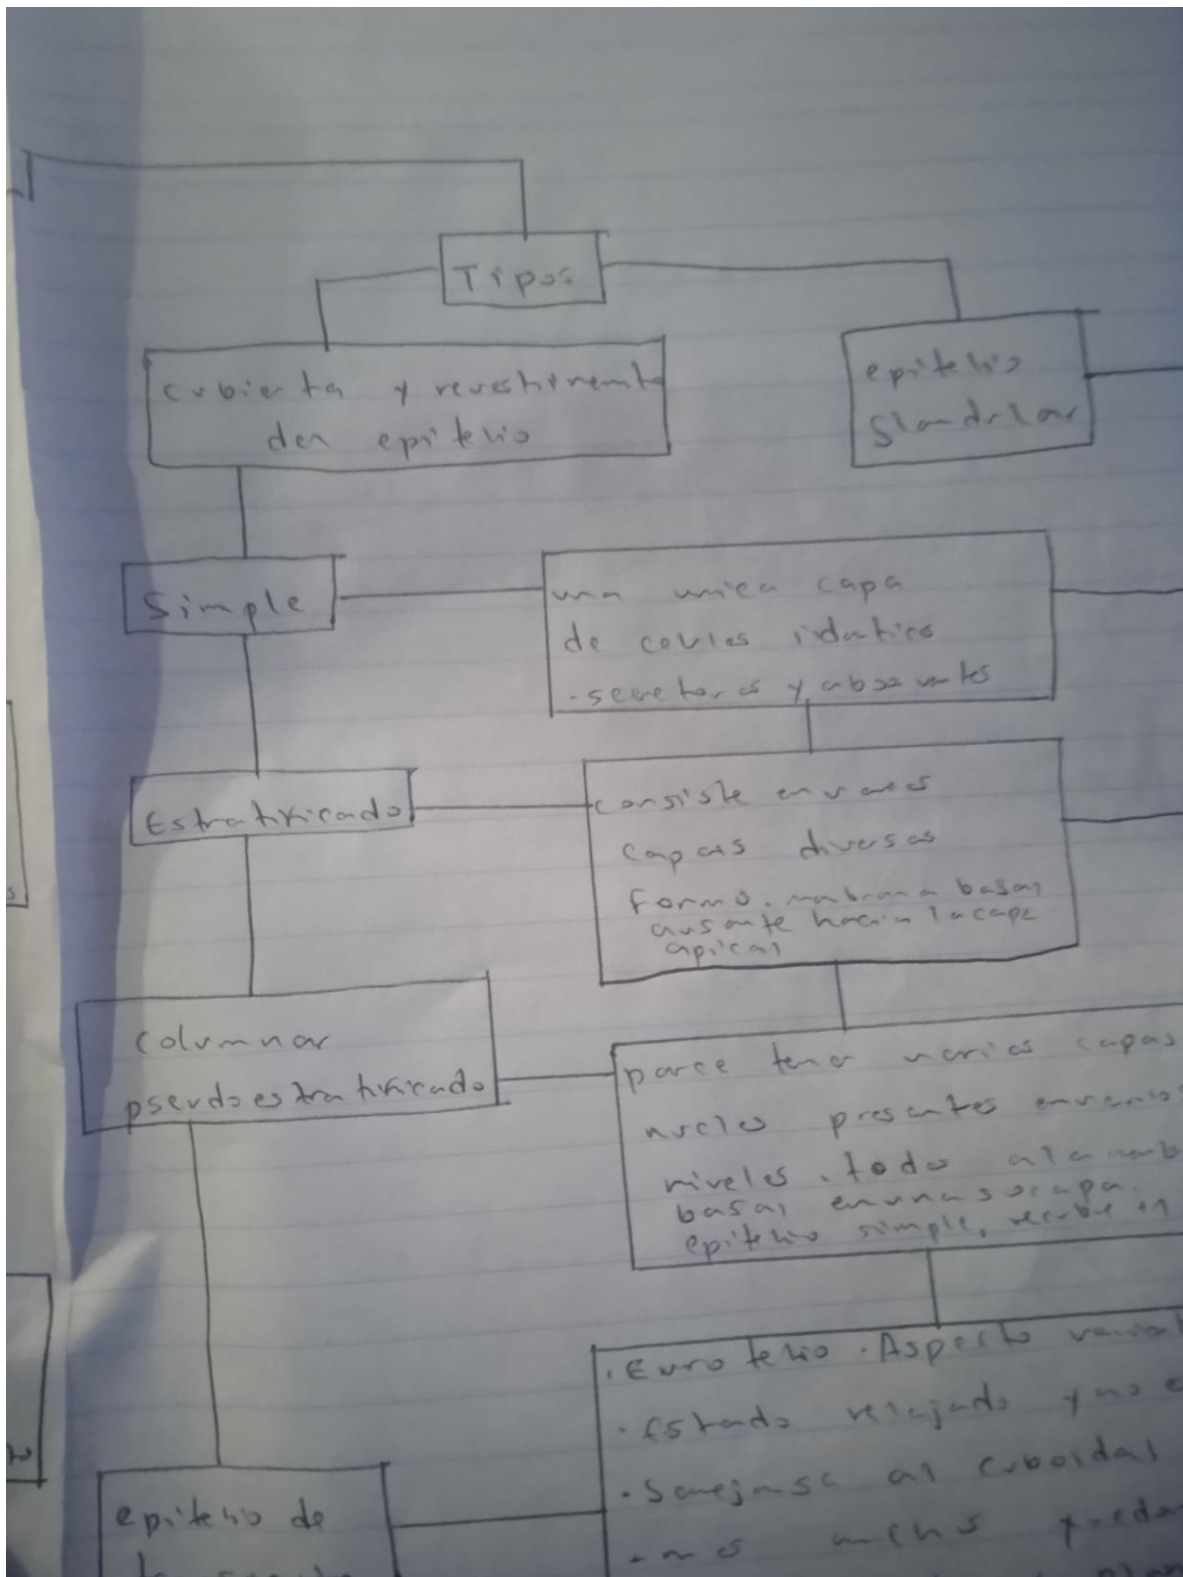 Tipos
cubierta y revestimiento
del epitelio
epitelio
Glandular
Simple
una unica capa
de celulas identico
-secretores y absorbentes
Estratificado
consiste en varias
capas diversas
forma. membrana basal
ausente hacia la capa
apical
Columnar
pseudoestratificado
parce tener varias capas
nucleo presentes en varios
niveles. todo a la
basal en una so capa.
epitelio simple, recibe
. Eurotelio . Aspecto
. Estado relajado y no
. Semejase al cuboidal
epitelio de